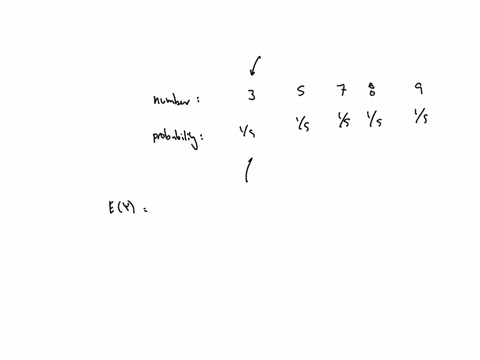 number: 3 5 7 8 9
probability: 1/5 1/5 1/5 1/5 1/5
E(Y) =